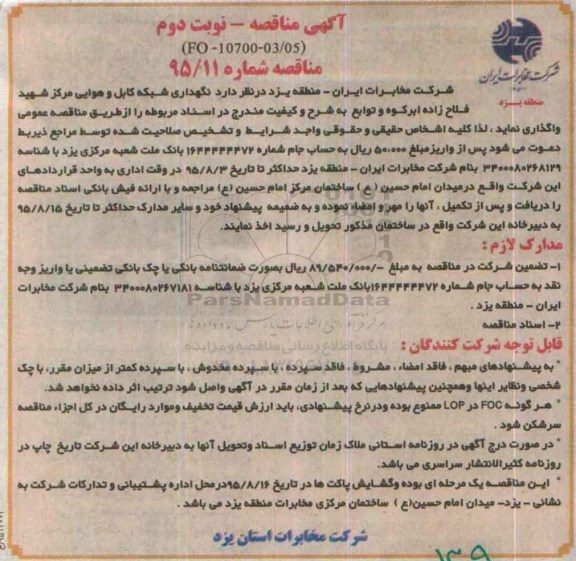 آگهی مناقصه – نوبت دوم
(FO -10700-03/05)
مناقصه شماره ۹۵/۱۱
شرکت مخابرات ایران
منطقه یزد
شرکت مخابرات ایران - منطقه یزد درنظر دارد نگهداری شبکه کابل و هوایی مرکز شهید
فلاح زاده ابرکوه و توابع به شرح و کیفیت مندرج در اسناد مربوطه را ازطریق مناقصه عمومی
واگذاری نماید ، لذا کلیه اشخاص حقیقی و حقوقی واجد شرایط و تشخیص صلاحیت شده توسط مراجع ذیربط
دعوت می شود پس از واریزمبلغ ۵۰،۰۰۰ ریال به حساب جام شماره ۱۶۴۴۴۴۴۴۷۲ بانک ملت شعبه مرکزی یزد با شناسه
۳۴۰۰۰۸۰۲۶۸۱۲۹ بنام شرکت مخابرات ایران - منطقه یزد حداکثر تا تاریخ ۹۵/۸/۳ در وقت اداری به واحد قراردادهای
این شرکت واقع درمیدان امام حسین ( ع ) ساختمان مرکز امام حسین (ع) مراجعه و با ارائه فیش بانکی اسناد مناقصه
را دریافت و پس از تکمیل ، آنها را مهر و امضاء نموده و به ضمیمه پیشنهاد خود و سایر مدارک حداکثر تا تاریخ ۹۵/۸/۱۵
به دبیرخانه این شرکت واقع در ساختمان مذکور تحویل و رسید اخذ نمایند.
مدارک لازم :
۱- تضمین شرکت در مناقصه به مبلغ -/۸۹/۵۴۰/۰۰۰ ریال بصورت ضمانتنامه بانکی یا چک بانکی تضمینی یا واریز وجه
نقد به حساب جام شماره ۱۶۴۴۴۴۴۴۷۲بانک ملت شعبه مرکزی یزد با شناسه ۳۴۰۰۰۸۰۲۶۷۱۸۱ بنام شرکت مخابرات
ایران - منطقه یزد .
ParsNamadData
۲- اسناد مناقصه
پایگاه اطلاع رسانی مناقصه و مزایده
قابل توجه شرکت کنندگان :
* به پیشنهادهای مبهم ، فاقد امضاء ، مشروط ، فاقد سپرده ، یا سپرده مخدوش ، با سپرده کمتر از میزان مقرر، با چک
شخصی ونظایر اینها وهمچنین پیشنهادهایی که بعد از زمان مقرر در آگهی واصل شود ترتیب اثر داده نخواهد شد.
* هر گونه FOC در LOP ممنوع بوده ودرنرخ پیشنهادی، باید ارزش قیمت تخفیف وموارد رایگان در کل اجزاء مناقصه
سرشکن شود .
* در صورت درج آگهی در روزنامه استانی ملاک زمان توزیع اسناد وتحویل آنها به دبیرخانه این شرکت تاریخ چاپ در
روزنامه کثیرالانتشار سراسری می باشد.
* این مناقصه یک مرحله ای بوده وگشایش پاکت ها در تاریخ ۹۵/۸/۱۶درمحل اداره پشتیبانی و تدارکات شرکت به
نشانی - یزد- میدان امام حسین(ع ) ساختمان مرکزی مخابرات منطقه یزد می باشد .
شرکت مخابرات استان یزد